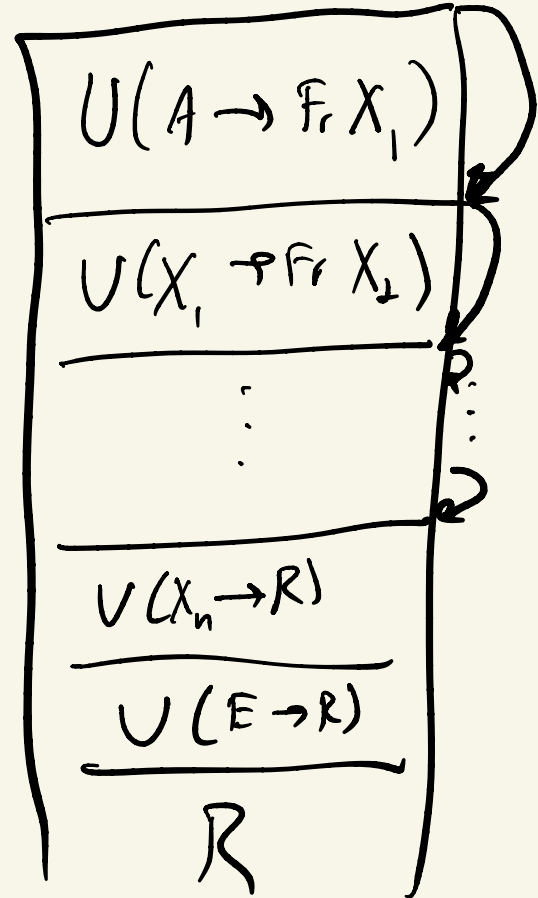 U(A → Fr X₁)
U(X₁ → Fr X₂)
⋮
⋮
U(Xₙ → R)
U(E → R)
R